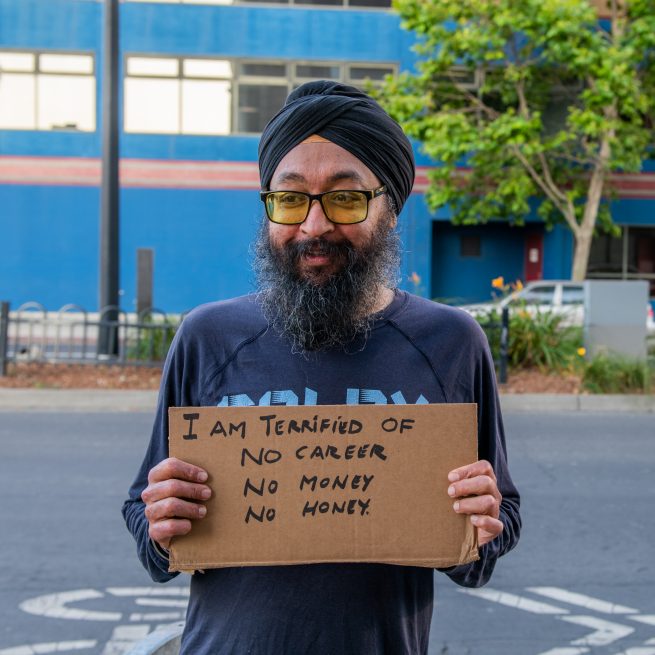 I AM TERRIFIED OF
NO CAREER
NO MONEY
NO HONEY.